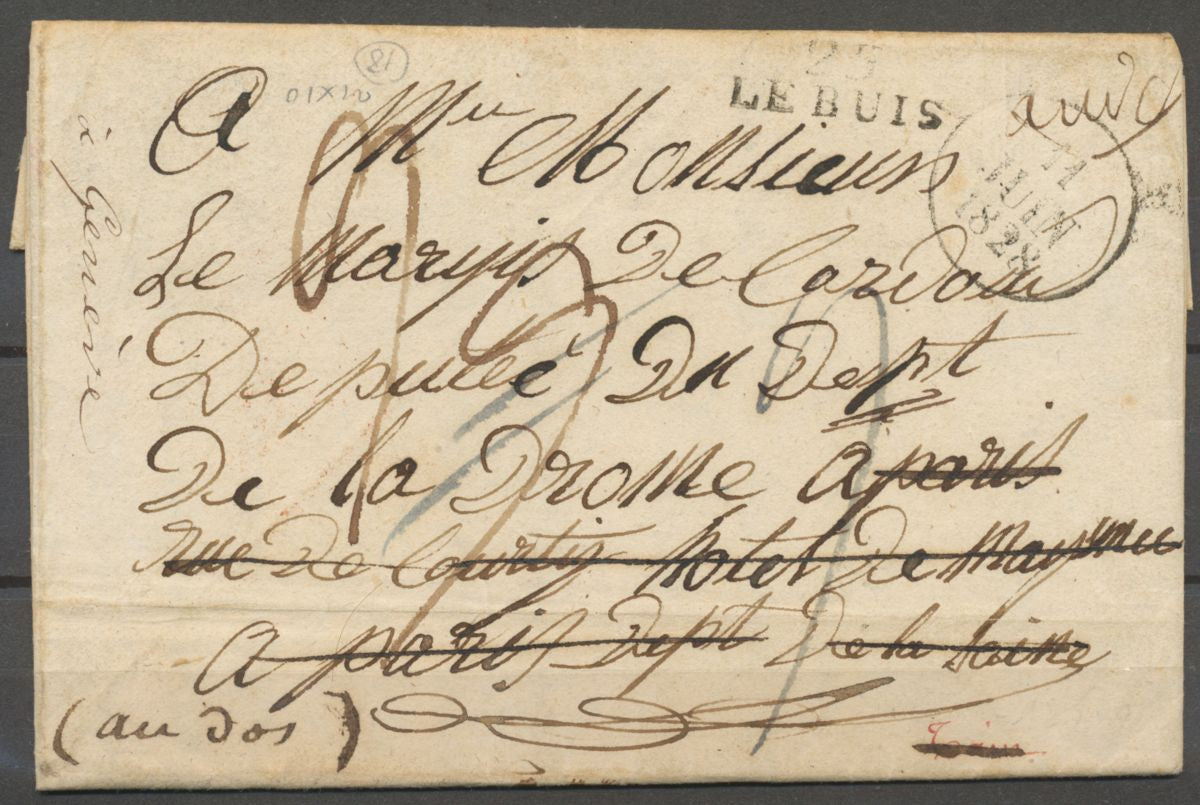 21
25
LE BUIS
11
JUIN
1828
A Mr Monsieur
Le Marquis De Cordoue
Deputé Du Dept
De la Drome a paris
rue De Courty hotel De
a paris Dept De la Seine
(au dos)
à Genêve